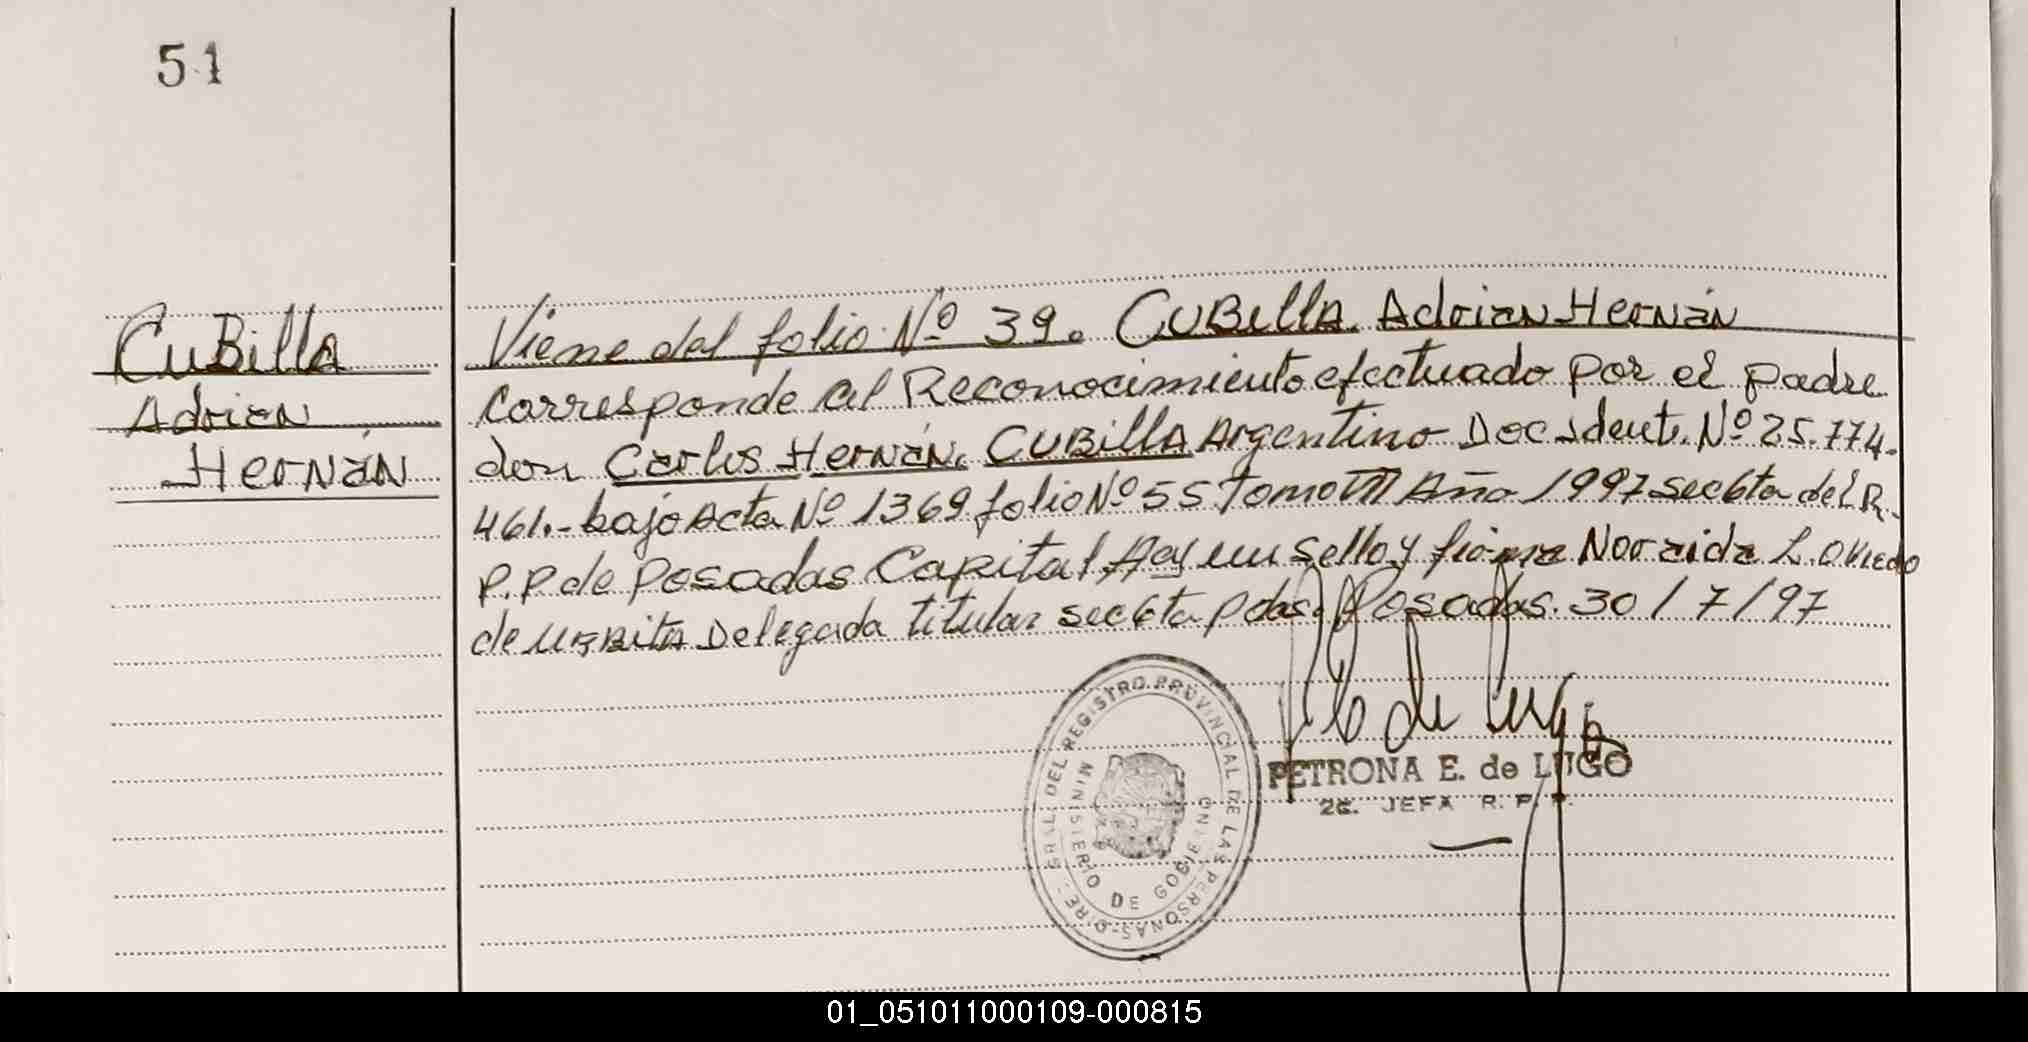 51
CUBilla
Adrian
Hernán
Viene del folio Nº 39. CUBilla Adrian Hernán
corresponde al Reconocimiento efectuado por el padre
don Carlos Hernán CUBilla Argentino Doc Ident. Nº 25.774.
461.- bajo Acta Nº 1369 folio Nº 55 Tomo III Año 1997 sec 6ta del R.
P.P de Posadas Capital Hay un sello y firma Noraida L. Oviedo
de URBITA Delegada titular sec 6ta Pdas. Posadas. 30/7/97
DIRE. GRAL. DEL REGISTRO PROVINCIAL DE LAS PERSONAS
MINISTERIO DE GOBIERNO
PETRONA E. de LUGO
2a. JEFA R. P. P.
01_051011000109-000815